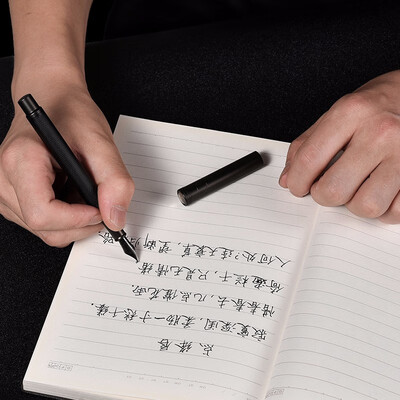 点绛唇
寂寞深闺,柔肠一寸愁千缕.
惜春春去,几点催花雨.
倚遍栏干,只是无情绪.
人何处?连天衰草,望断归